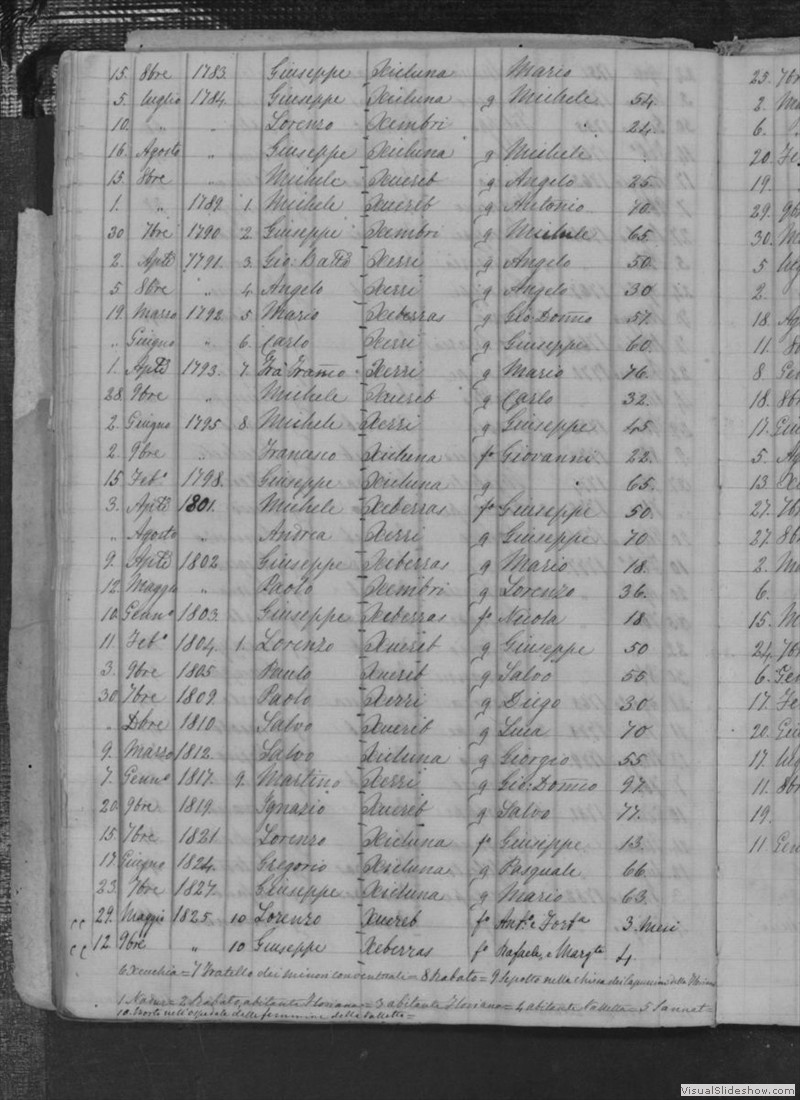 15. 8bre 1783. Giuseppe Xicluna Mario
5. luglio 1784. Giuseppe Xicluna g Michele 54.
10. " " Lorenzo Xembri " 24.
16. Agosto " Giuseppe Xicluna g Michele
15. 8bre Michele Xuereb g Angelo 25.
1. " 1789. 1. Michele Xuereb g Antonio 70.
30 7bre 1790 2. Giuseppe Xembri g Michele 65.
2. Aple 1791. 3. Gio: Batta Xerri g Angelo 50.
5 8bre " 4. Angelo Xerri g Angelo 30
19. Marzo 1792 5 Mario Xeberras g Gio: Domco 57.
" Giugno " 6. Carlo Xerri g Giuseppe 60.
1. Aple 1793. 7. Fra Franco Xerri g Mario 76.
28. 9bre " Michele Xuereb g Carlo 32.
2. Giugno 1795 8. Michele Xerri g Giuseppe 45.
2. 9bre " Francesco Xicluna fo Giovanni 22.
15 Febo 1798. Giuseppe Xicluna g " 65.
3. Aple 1801. Michele Xeberras fo Giuseppe 50.
" Agosto " Andrea Xerri g Giuseppe 70
9. Aple 1802 Giuseppe Xeberras g Mario 18.
12. Maggio " Paolo Xembri g Lorenzo 36.
10. Genno 1803. Giuseppe Xeberras fo Nicola 18
11. Febo 1804. 1. Lorenzo Xuereb g Giuseppe 50
3. 9bre 1805 Paulo Xuereb g Salvo 55.
30 7bre 1809. Paolo Xerri g Diego 30.
" Dbre 1810. Salvo Xuereb g Luca 70
9. Marzo 1812. Salvo Xicluna g Giorgio 55.
7. Genno 1817. 9. Martino Xerri g Gio: Domco 97.
20. 9bre 1819. Ignazio Xuereb g Salvo 77.
15. 7bre 1821 Lorenzo Xicluna fo Giuseppe 13.
17. Giugno 1824. Gregorio Xicluna g Pasquale 66.
23. 7bre 1827. Giuseppe Xicluna g Mario 63.
29. Maggio 1825. 10 Lorenzo Xuereb fo Anto e Forta 3. Mesi
12. 9bre " 10 Giuseppe Xeberras fo Rafaele, e Margta 4.
6. Xenchia = 7 Fratello dei minori conventuali = 8 Rabato = 9 Sepolto nella chiesa dei Capuccini della Floriana
1. Naxar = 2 Rabato, abitante Floriana = 3 abitante Floriana = 4 abitante Valletta = 5 Sannat =
10. Morto nell'ospedale delle femmine della Valletta =
25. 7br
2. Ma
6.
20. Fe
19.
29. 9br
30. Ma
5 lug
2.
18. Ag
11. 8b
8 Gen
18. 8br
17. Giu
5. Ag
13.
27. 7br
27. 8br
2. Ma
6.
15. M
24. 7br
6. Gen
17. Fe
20. Giu
17. lug
11. 8br
19.
11 Gen
VisualSlideshow.com